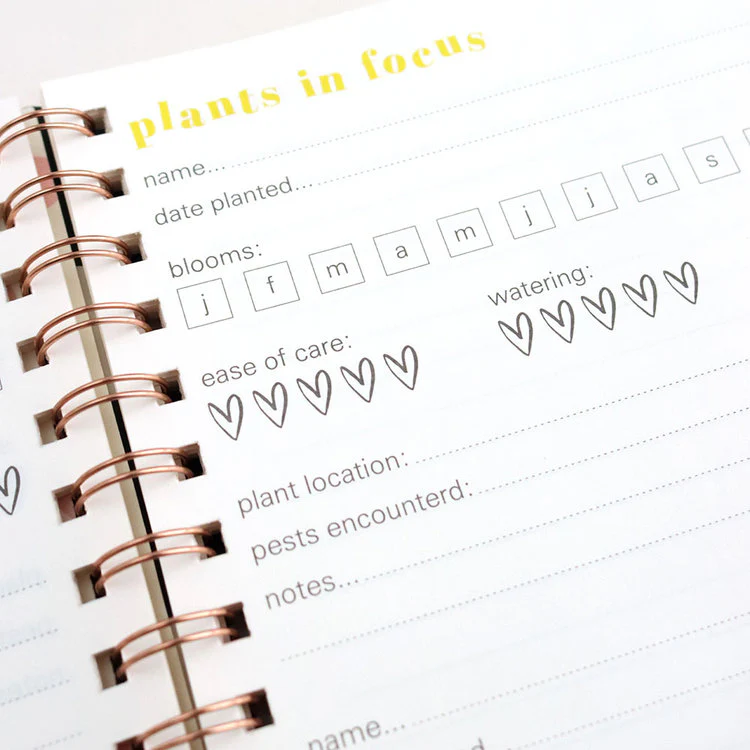 plants in focus
name...
date planted...
blooms:
j f m a m j j a s
watering:
ease of care:
plant location:
pests encounterd:
notes...
name...